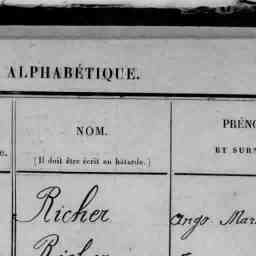 ALPHABÉTIQUE.
NOM.
(Il doit être écrit en bâtarde.)
PRÉNO
ET SURN
e.
Richer
ango. Mar
Richer